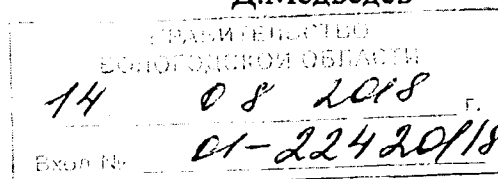 Д.Медведев
ПРАВИТЕЛЬСТВО
ВОЛОГОДСКОЙ ОБЛАСТИ
14 08 2018 г.
Вход № 01-22420/18